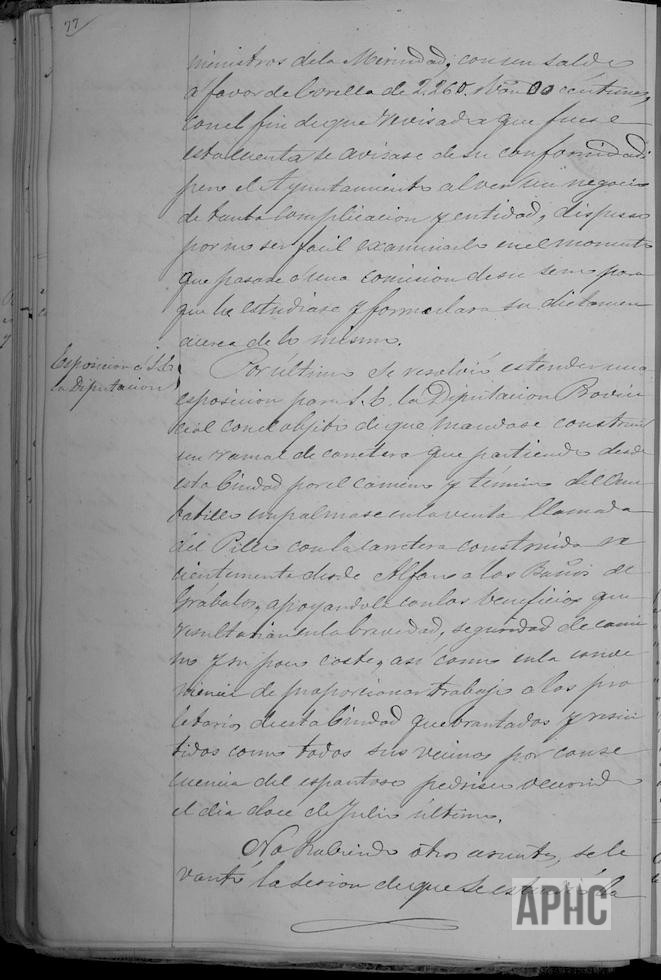 77
ministros de la Merindad, con un saldo
a favor de Corella de 2.260. rvon 00 centimos,
con el fin de que revisada que fuese
esta cuenta se avisase de su conformidad;
pero el Ayuntamiento al ver un negocio
de tanta complicacion y entidad, dispuso
por no ser facil examinarlo en el momento
que pasase a una comision de su seno para
que la estudiase y formulara su dictamen
acerca de lo mismo.
Esposicion á S.E.
la Diputacion
Por último se resolvió estender una
esposicion para S.E. la Diputacion Provin
cial con el objeto de que mandase construir
un ramal de carretera que partiendo desde
esta Ciudad por el camino y término del Com
batillo empalmase en la venta llamada
del Pillo con la carretera construida re
cientemente desde Alfaro a los Baños de
Grabalos, apoyandole con los beneficios que
resultarian en la brevedad, seguridad de cami
no y su poco coste, así como en la conve
niencia de proporcionar trabajo a los pro
letarios de esta Ciudad quebrantados y resen
tidos como todos sus vecinos por conse
cuencia del espantoso pedrisco ocurrido
el dia doce de Julio último.
No habiendo otros asuntos, se le
vantó la sesion de que se estendió la
APHC